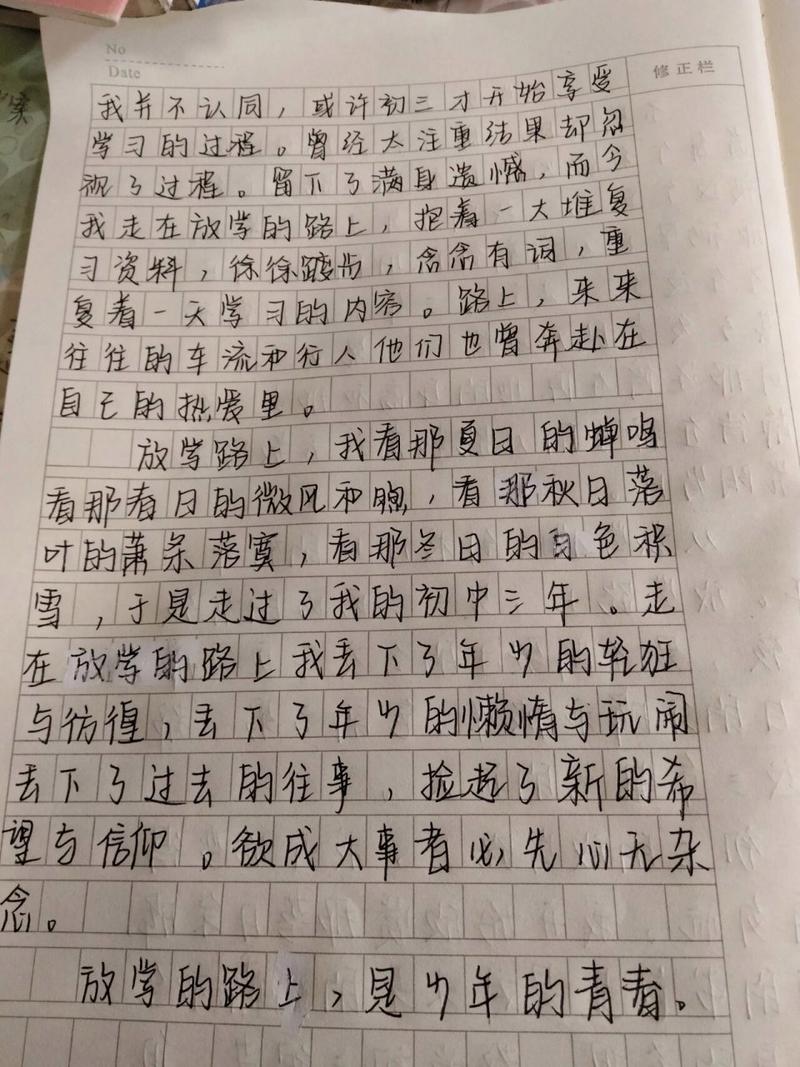 No
Date
修正栏
我并不认同，或许初三才开始享受
学习的过程。曾经太注重结果却忽
视了过程。留下了满身遗憾，而今
我走在放学的路上，抱着一大堆复
习资料，徐徐踱步，念念有词，重
复着一天学习的内容。路上，来来
往往的车流和行人他们也曾奔赴在
自己的热爱里。
放学路上，我看那夏日的蝉鸣
看那春日的微风和煦，看那秋日落
叶的萧条落寞，看那冬日的白色积
雪，于是走过了我的初中三年。走
在放学的路上我丢下了年少的轻狂
与彷徨，丢下了年少的懒惰与玩闹
丢下了过去的往事，捡起了新的希
望与信仰。欲成大事者必先心无杂
念。
放学的路上，是少年的青春。